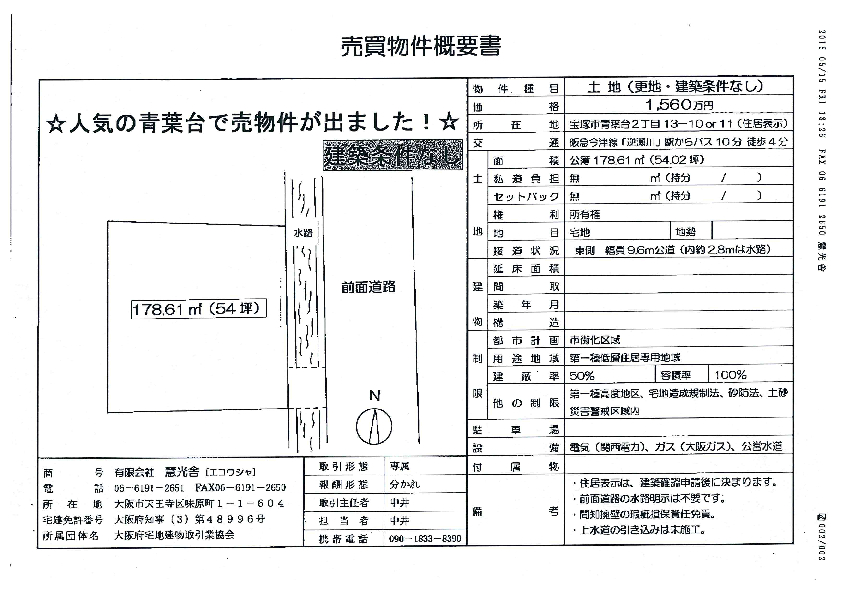 売買物件概要書
☆人気の青葉台で売物件が出ました！☆
建築条件なし
水路
前面道路
178.61㎡（54坪）
N
物件種目 土地（更地・建築条件なし）
価格 1,560万円
所在地 宝塚市青葉台2丁目13-10 or 11（住居表示）
交通 阪急今津線「逆瀬川」駅からバス10分 徒歩4分
土地
面積 公簿178.61㎡（54.02坪）
私道負担 無 ㎡（持分 / ）
セットバック 無 ㎡（持分 / ）
権利 所有権
地目 宅地 地勢
接道状況 東側 幅員9.6m公道（内約2.8mは水路）
建物
延床面積
間取
築年月
構造
制限
都市計画 市街化区域
用途地域 第一種低層住居専用地域
建蔽率 50% 容積率 100%
他の制限 第一種高度地区、宅地造成規制法、砂防法、土砂
災害警戒区域内
駐車場
設備 電気（関西電力）、ガス（大阪ガス）、公営水道
付属物
備考
・住居表示は、建築確認申請後に決まります。
・前面道路の水路明示は不要です。
・間知擁壁の瑕疵担保責任免責。
・上水道の引き込みは未施工。
商号 有限会社 慧光舎［エコウシャ］
電話 06-6191-2651 FAX06-6191-2650
所在地 大阪市天王寺区味原町1-1-604
宅建免許番号 大阪府知事（3）第48996号
所属団体名 大阪府宅地建物取引業協会
取引形態 専属
報酬形態 分かれ
取引主任者 中井
担当者 中井
携帯電話 090-1833-8390
2015 05/15 FRI 18:25 FAX 06 6191 2650 慧光舎
002/003